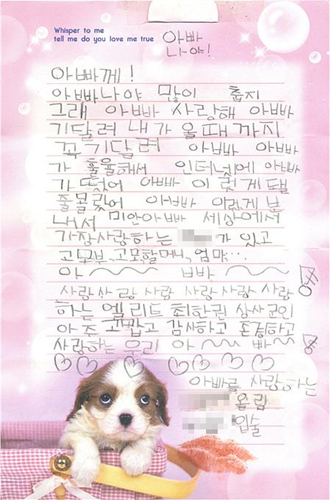 Whisper to me
tell me do you love me true
아빠
나야!
아빠께!
아빠나야 많이 춥지
그래 아빠 사랑해 아빠
기달려 내가 올때까지
꼭기달려 아빠 아빠
가 훌융해서 인터넷에 아빠
가 떳어 아빠 이렇게될
줄몰랐어 아빠 이렇게보
내서 미안아빠 세상에서
가장사랑하는 가 있고
고모부, 고모할머니, 엄마...
아~~ 빠빠~~
사랑사랑 사랑 사랑 사랑 사랑
하는 엘리트 최한권 상사군인
아주 고맙고 감사하고 존경하고
사랑하는 우리 아~~ 빠~~
아빠를 사랑하는
올림
입술